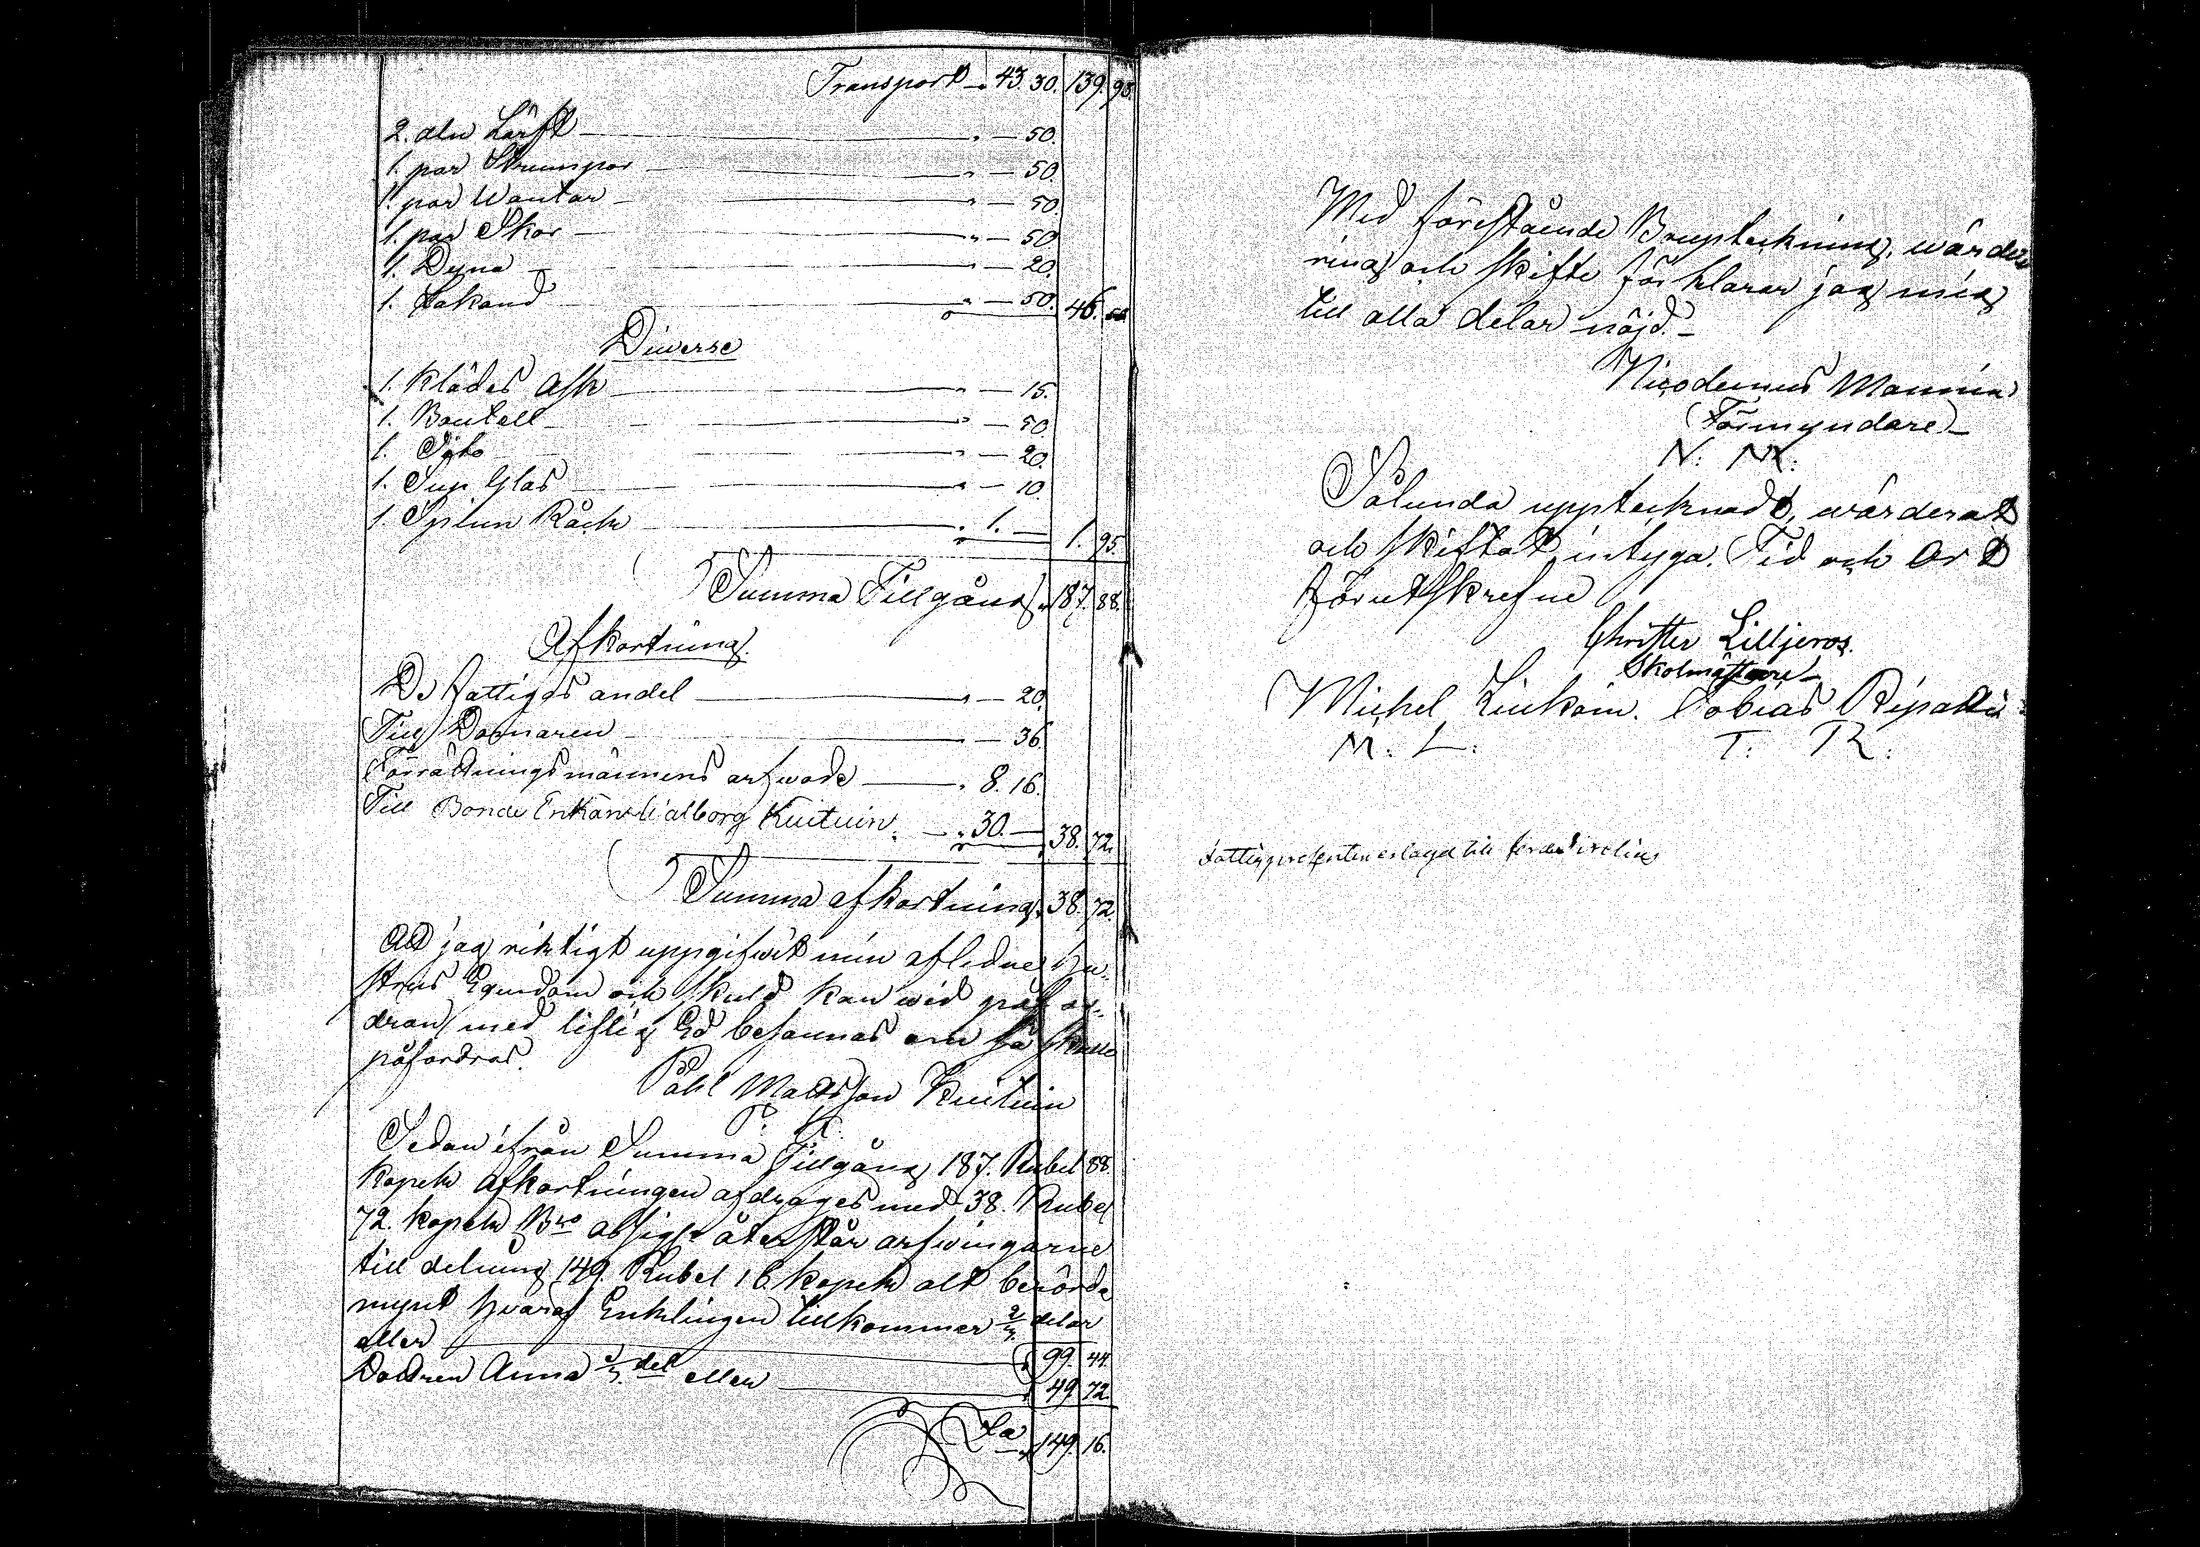 Transport 43. 30. 139. 93.
2. aln Lärft — 50.
1. par Strumpor — 50.
1. par Wantar — 50
1. par Skor — 50
1. Dyna — 20.
1. Lakand — 50. 46.
Diverse
1. Klädes Ask — 15.
1. Boutell — 50.
1. — 20.
1. Sup Glas — 10.
1. Spinn Råck — 1. — 1. 95.
Summa Tillgång 187. 88.
Afkortning.
De fattigas andel — 20.
Till Domaren — 36.
Förrättningsmännens arfwode — 8. 16.
Till Bonde Enkan Walborg Kuituin — 30. — 38. 72.
Summa afkortning 38. 72.
Att jag riktigt uppgifwit min aflidne Hu-
strus Egendom och skuld kan wid påfor-
dran med liflig Ed besannas om så skulle
påfordras.
Påhl Mattsson Kuituin
P. K.
Sedan ifrån Summa Tillgång 187. Rubel 88.
kopek afkortningen afdrages med 38. Rubel
72. kopek Bco assigr återstår arfwingarne
till delning 149. Rubel 16. kopek alt berörde
mynt hwaraf Enklingen tillkommer 2/3 delar
eller — 99. 44.
Dottren Anna 1/3 del eller — 49. 72.
Sa 149. 16.
Med förestående Boupteckning, wärde-
ring och skifte förklarar jag mig
till alla delar nöjd.
Nicodemus Mannin
(Förmyndare)
N. M.
Sålunda upptecknadt, wärderat
och skiftat, intyga. Tid och Ort
förutskrefne
Christer Lilljeros.
Skolmästare
Michel Liukoin. Tobias Ripatti
M. L. T. R.
till